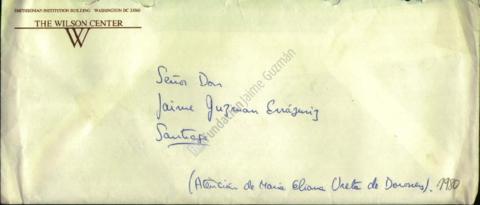 SMITHSONIAN INSTITUTION BUILDING WASHINGTON DC 20560
THE WILSON CENTER
W
Señor Don
Jaime Guzmán Errázuriz
Santiago
Fundación Jaime Guzmán
(Atención de Maria Eliana de). 1980